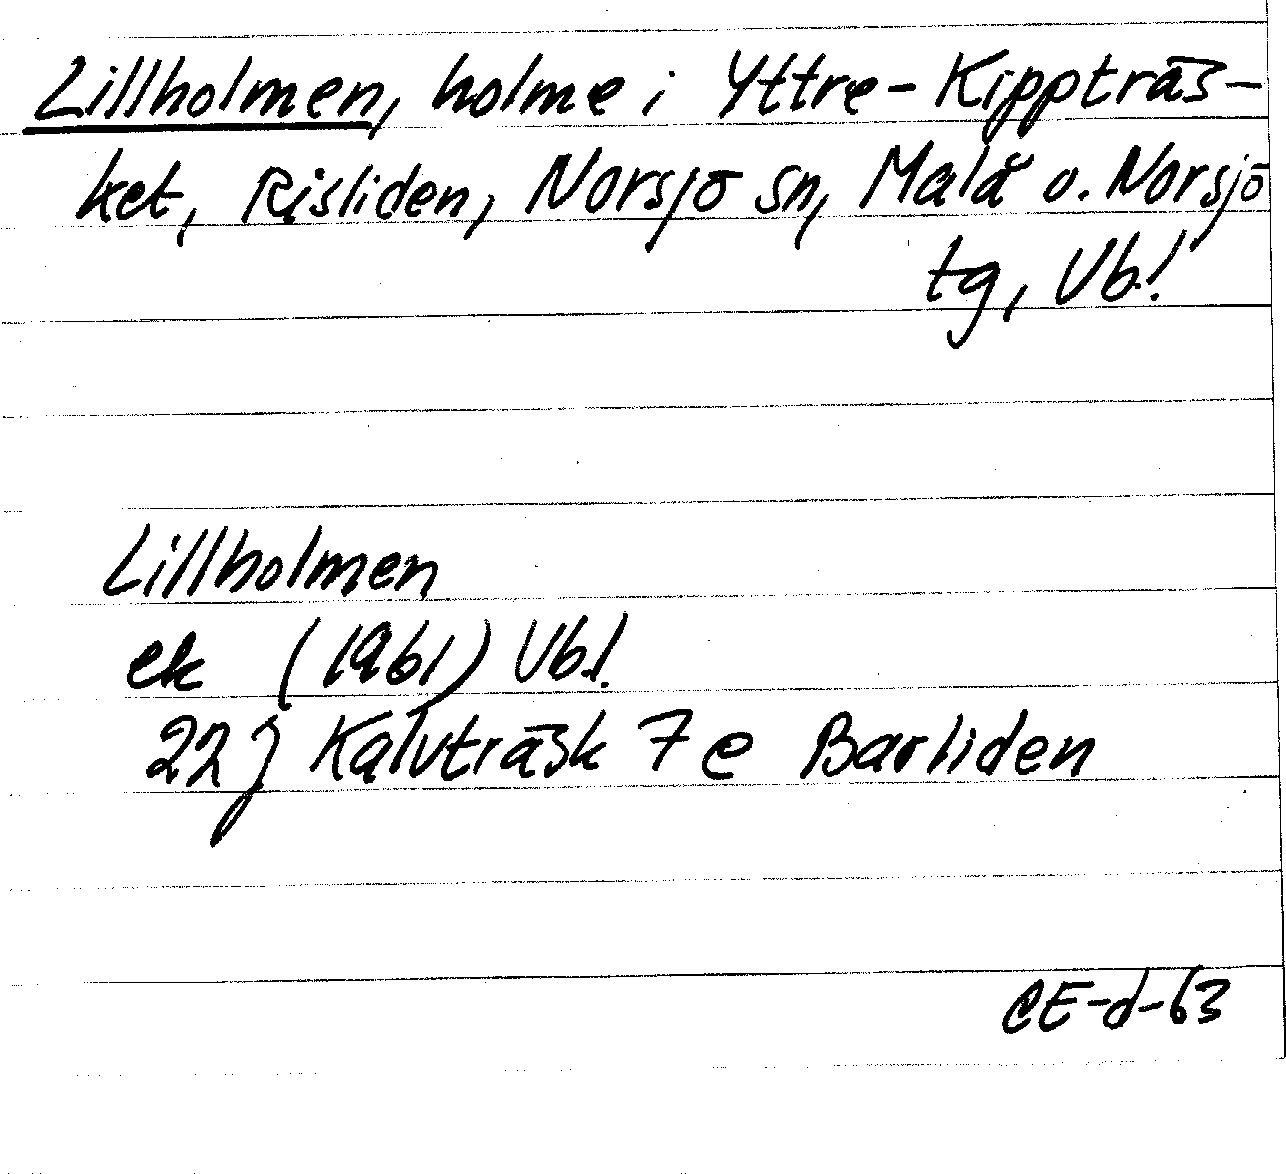 Lillholmen, holme i Yttre-Kippträs-
ket, Risliden, Norsjö sn, Malå o. Norsjö
tg, Vb!
Lillholmen
ek (1961) Vb!
22 J Kalvträsk 7 e Barliden
CE-d-63